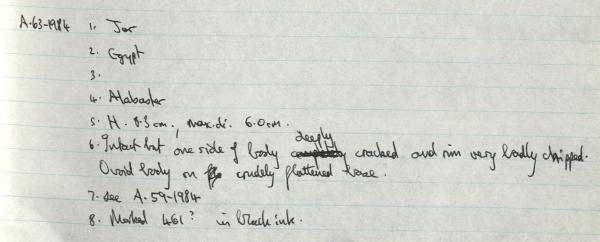 A.63-1984 1. Jar
2. Egypt
3.
4. Alabaster
5. H. 8.3 cm, max.di. 6.0cm.
6. Intact but one side of body deeply cracked and rim very badly chipped.
Ovoid body on crudely flattened base.
7. see A.59-1984
8. Marked 461? in black ink.